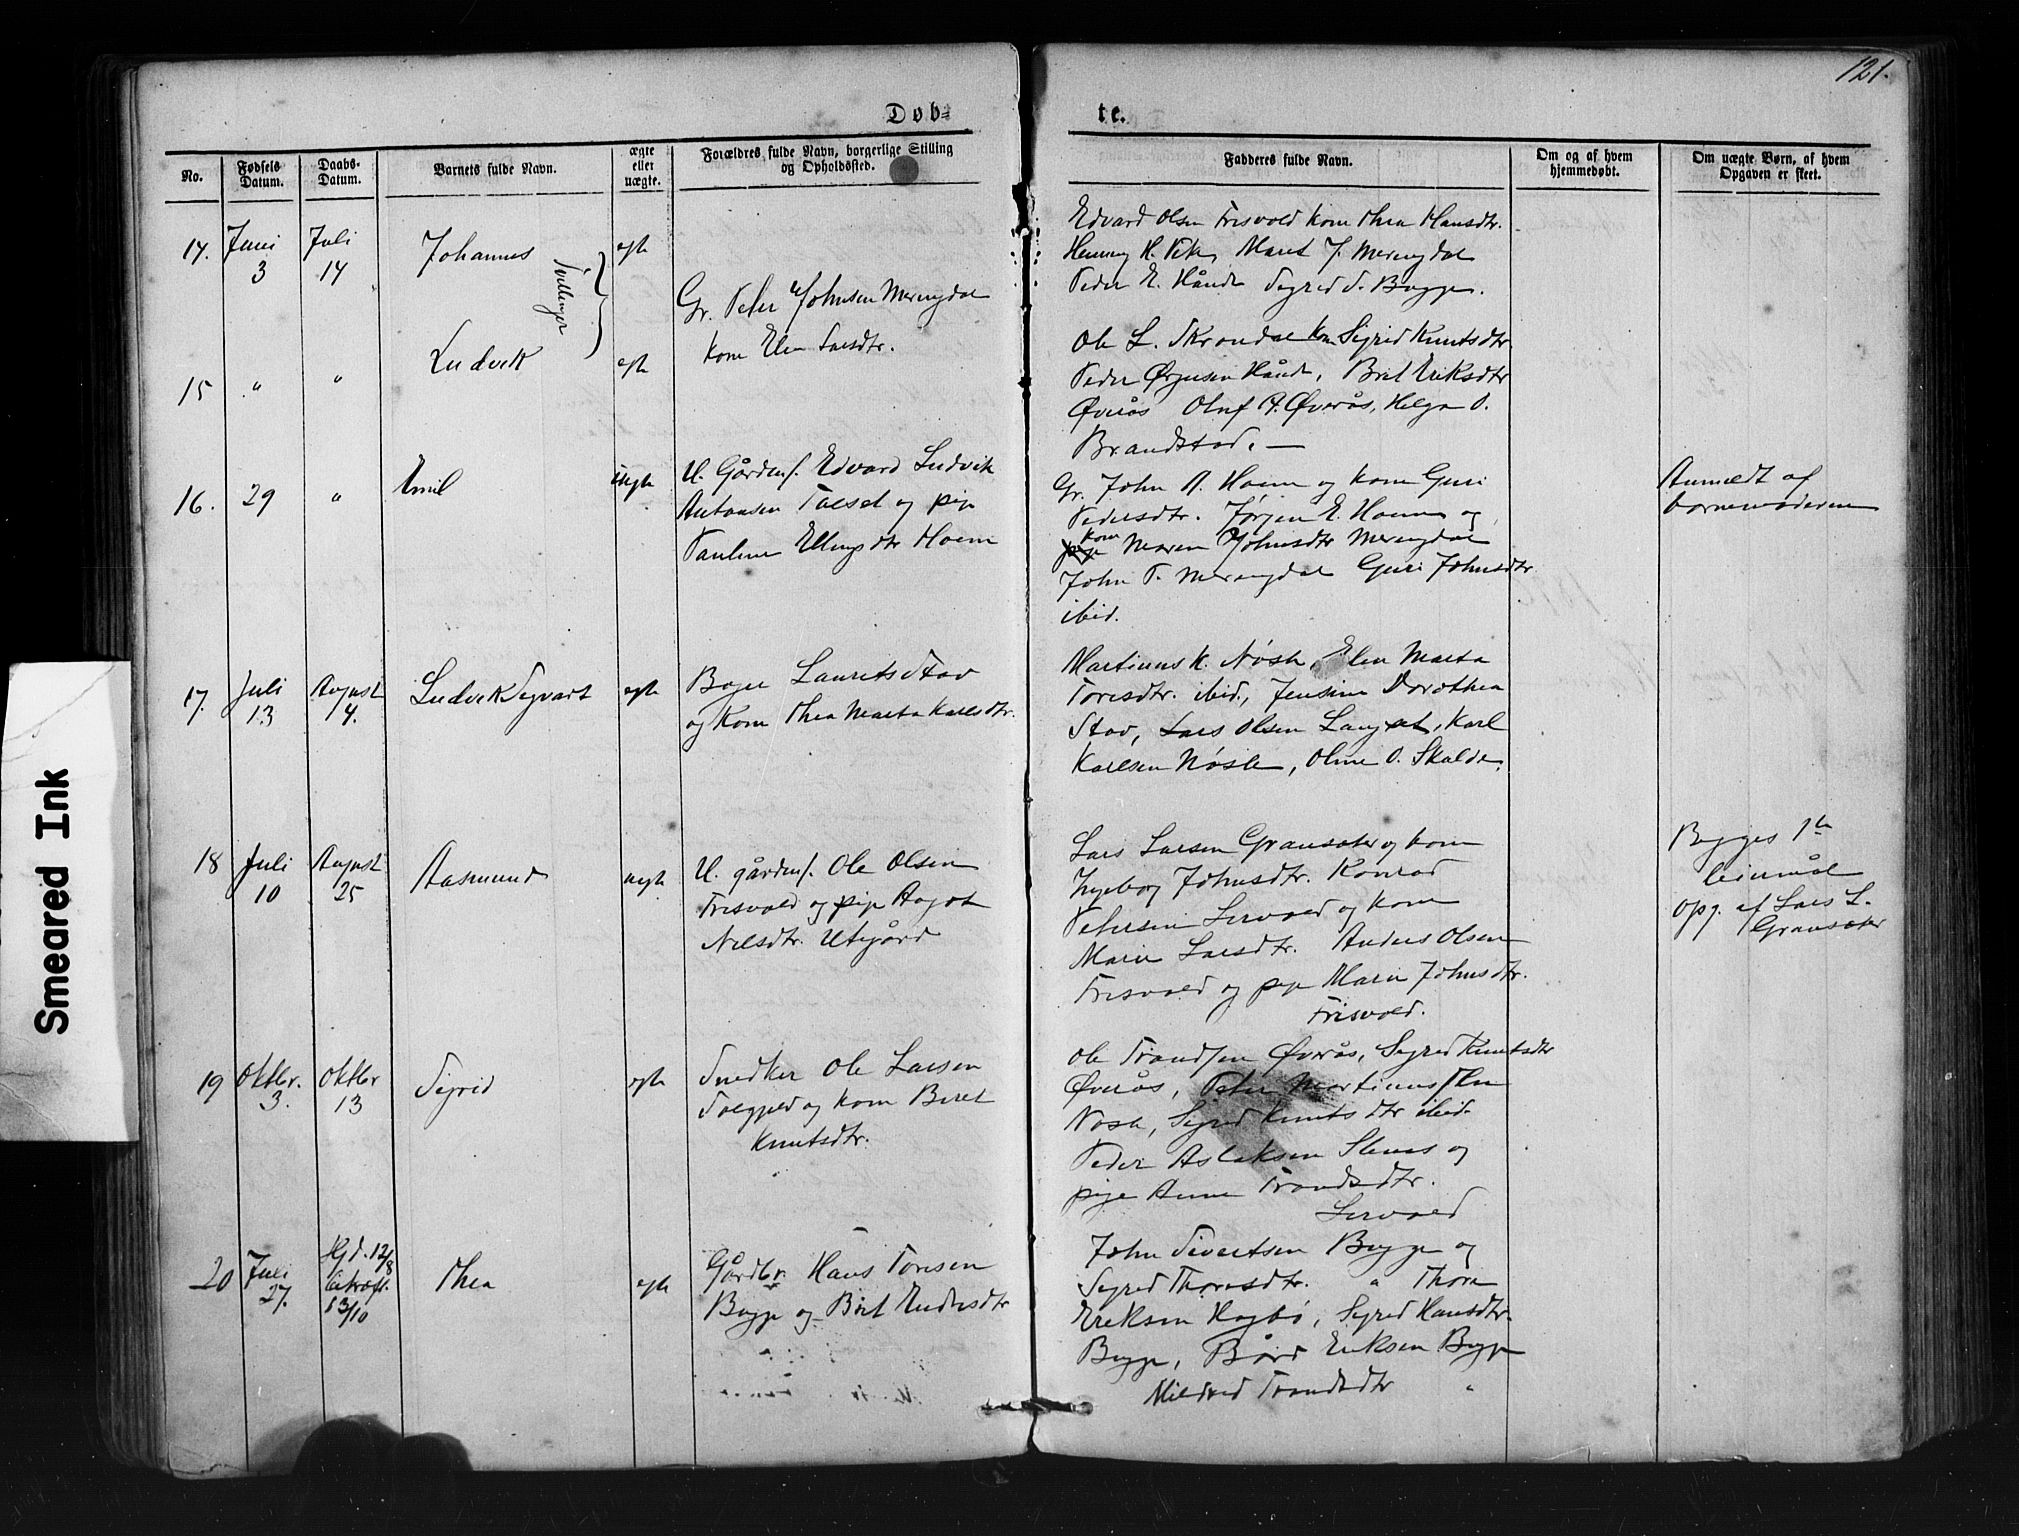 121.
Døb=
te.
No.
Fødsels Datum.
Daabs-Datum.
Barnets fulde Navn.
ægte eller uægte.
Forældres fulde Navn, borgerlige Stilling og Opholdssted.
Faddernes fulde Navn.
Om og af hvem hjemmedøbt.
Om uægte Børn, af hvem Opgaven er skeet.
14. Juni 3 Juli 14 Johannes egte
Tvillinger
Gr. Peter Johnsen Merengdal
kone Elen Larsdtr.
Edvard Olsen Frisvold kone Thea Hansdtr.
Henning H. Vike, Maret J. Merengdal
Peder E. Hånde Sigrid S. Bugge.
15 " " Ludvik egte
Ole L. Skrondal kone Sigrid Knutsdtr
Peder Ørjensen Hånde, Brit Eriksdtr
Øverås Oluf P. Øverås, Helga O.
Brandstad. —
16. 29 " Emil uegte
U. Gårdm/. Edvard Ludvik
Antonsen Talset og pige
Pauline Ellingsdtr Hoem
Gr. John A. Hoem og kone Guri
Pedersdtr. Jørgen E. Hoem og
kone Maren Johnsdtr Merengdal
John P. Merengdal Guri Johnsdtr
ibid.
Anmeldt af
barnemoderen
17. Juli 13 August 4. Ludvik Sigvart egte
Laurits Stav
og kone Thea Marta Karlsdtr.
Martinus K. Nøste, Elen Marta
Toresdtr. ibid., Jensine Dorothea
Stav, Lars Olsen Langset, Karl
Karlsen Nøste, Oline O. Skalde.
18 Juli 10 August 25 Rasmund uegte
U. gårdm/. Ole Olsen
Frisvold og pige Aagot
Nilsdtr. Utigård
Lars Larsen Gransæter og kone
Ingeborg Johnsdtr. Konrad
Petersen Lervold og kone
Marie Larsdtr. Anders Olsen
Frisvold og pige Marie Johnsdtr.
Frisvold.
Begges 1ste
leiermål
Opg. af Lars L.
Gransæter
19 Oktbr. 3. Oktbr 13 Sigrid egte
Snedker Ole Larsen
og kone Beret
Knutsdtr.
Ole Trondsen Øverås, Sigrid Knutsdtr
Øverås, Peter Martinussen
Nøste, Sigrid Knutsdtr ibid.
Peder Aslaksen Stenes og
pige Anne Trondsdtr.
Lervold
20 Juli 27. Hjd. 12/8 13/10 Thea egte
Gårdbr. Hans Toresen
Bugge og Brit Endresdtr
John Sivertsen Bugge og
Sigrid Thoresdtr. " Thore
Eriksen Hagbø, Sigrid Hansdtr.
Bugge, Bård Eriksen Bugge
Mildrid Trondsdtr "
Smeared Ink